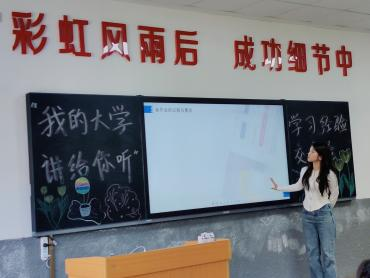 彩虹风雨后 成功细节中
我的大学
讲给你听"
学习经验
交